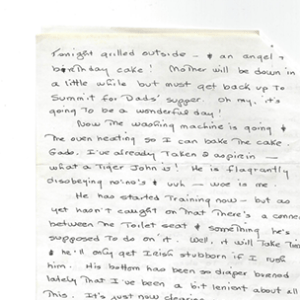 Tonight grilled outside - & an angel &
birthday cake! Mother will be down in
a little while but must get back up to
Summit for Dads' supper. Oh my, it's
going to be a wonderful day!
Now the washing machine is going &
the oven heating so I can bake the cake.
Gads. I've already taken 2 aspirin -
what a Tiger John is! He is flagrantly
disobeying no-no's & uuh - woe is me.
He has started Training now - but as
yet hasn't caught on that There's a conne
between the Toilet seat & something he's
supposed To do on it. Well, it will Take Tim
& he'll only get Irish stubborn if I rush
him. His bottom has been so diaper burned
lately that I've been a bit lenient about all
This. It's just now clearing